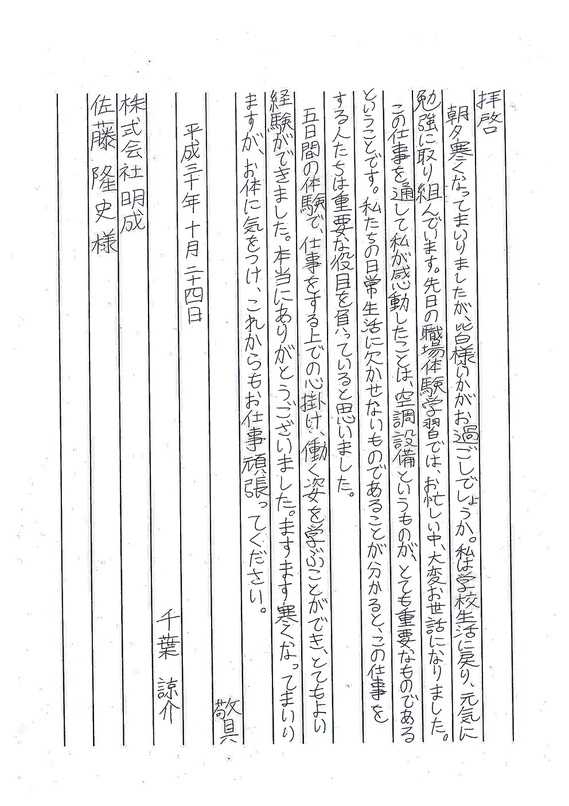 拝啓
朝夕寒くなってまいりましたが、皆様いかがお過ごしでしょうか。私は学校生活に戻り、元気に
勉強に取り組んでいます。先日の職場体験学習では、お忙しい中、大変お世話になりました。
この仕事を通して私が感動したことは、空調設備というものが、とても重要なものである
ということです。私たちの日常生活に欠かせないものであることが分かると、この仕事を
する人たちは重要な役目を負っていると思いました。
五日間の体験で、仕事をする上での心掛け、働く姿を学ぶことができ、とてもよい
経験ができました。本当にありがとうございました。ますます寒くなってまいり
ますが、お体に気をつけ、これからもお仕事頑張ってください。
敬具
平成三十年十月二十四日
千葉 諒介
株式会社明成
佐藤隆史様